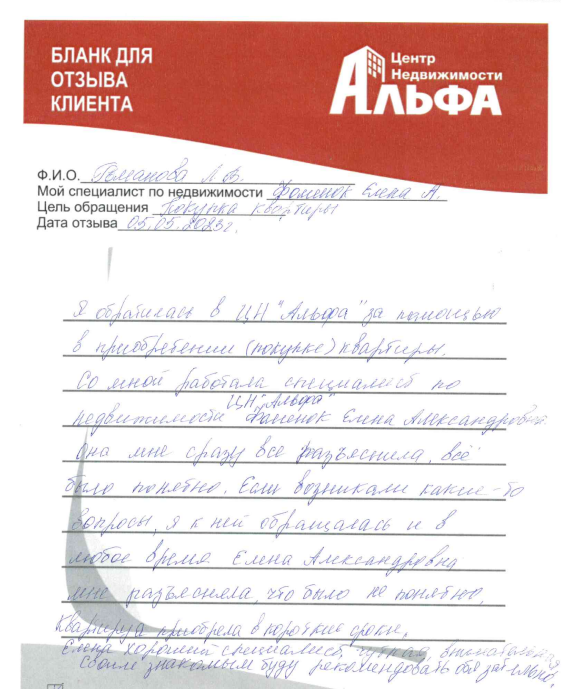 БЛАНК ДЛЯ
ОТЗЫВА
КЛИЕНТА
Центр
Недвижимости
АЛЬФА
Ф.И.О. Гетманова Л.В.
Мой специалист по недвижимости Фоменок Елена А.
Цель обращения Покупка квартиры
Дата отзыва 05.05.2023г.
Я обратилась в ЦН "Альфа" за помощью
в приобретении (покупке) квартиры.
Со мной работала специалист по
ЦН "Альфа"
недвижимости Фоменок Елена Александровна.
она мне сразу все разъяснила, всё
было понятно. Если возникали какие-то
вопросы, я к ней обращалась и в
любое время Елена Александровна
мне разъясняла, что было не понятно.
Квартиру приобрела в короткие сроки.
Елена хороший специалист, чуткая, внимательная,
своим знакомым буду рекомендовать обязательно.